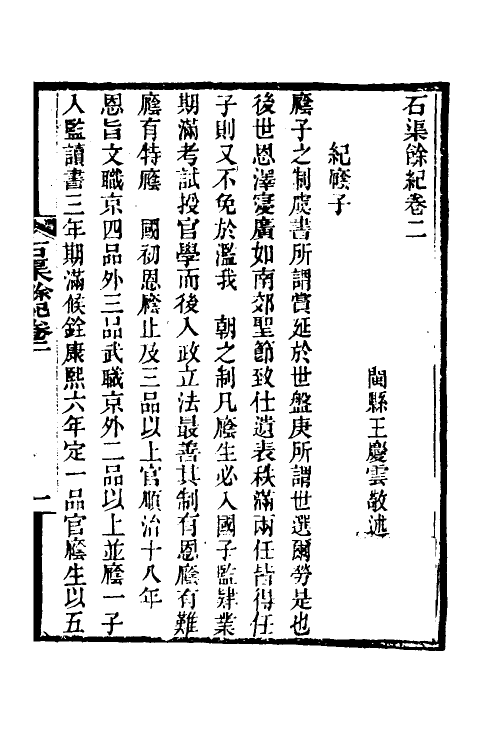 石渠餘紀卷二
閩縣王慶雲敬述
紀廕子
廕子之制虞書所謂賞延於世盤庚所謂世選爾勞是也
後世恩澤寖廣如南郊聖節致仕遺表秩滿兩任皆得任
子則又不免於濫我　朝之制凡廕生必入國子監肄業
期滿考試授官學而後入政立法最善其制有恩廕有難
廕有特廕　國初恩廕止及三品以上官順治十八年
恩旨文職京四品外三品武職京外二品以上並廕一子
入監讀書三年期滿候銓康熙六年定一品官廕生以五
石渠餘紀卷二
一